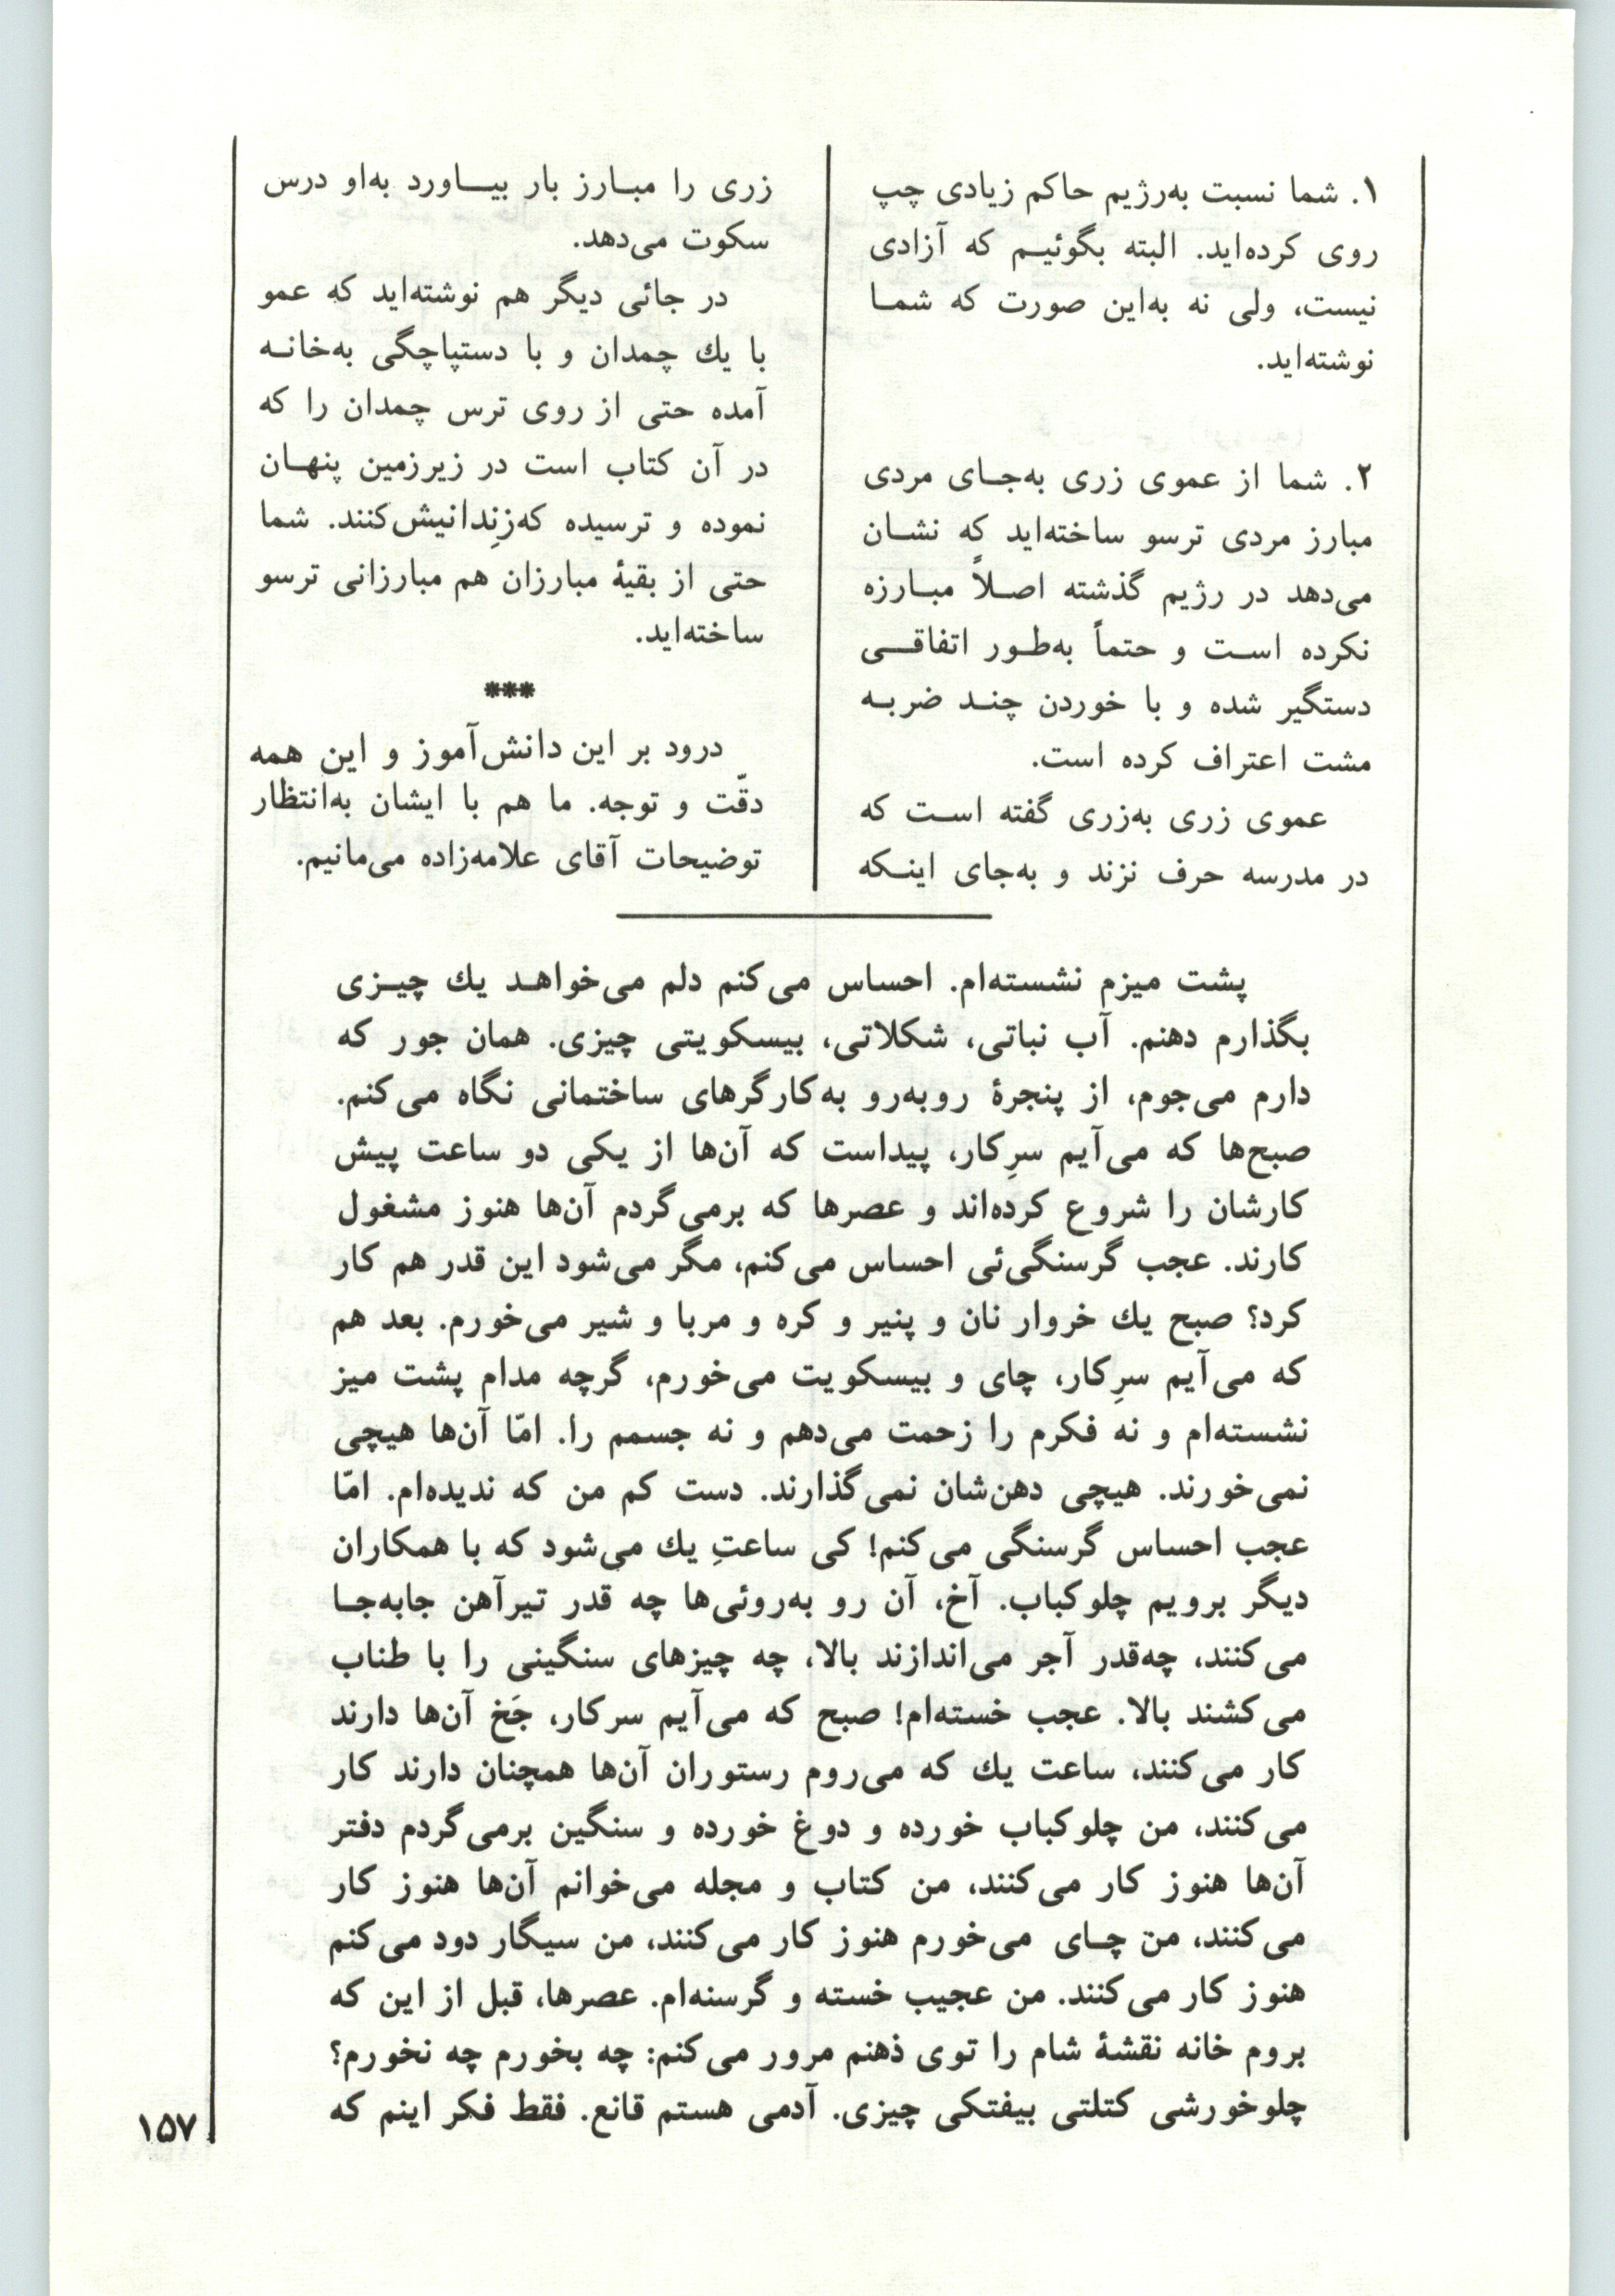 ۱. شما نسبت به‌رژیم حاکم زیادی چپ
روی کرده‌اید. البته بگوئیم که آزادی
نیست، ولی نه به‌این صورت که شما
نوشته‌اید.
۲. شما از عموی زری به‌جای مردی
مبارز مردی ترسو ساخته‌اید که نشان
می‌دهد در رژیم گذشته اصلاً مبارزه
نکرده است و حتماً به‌طور اتفاقی
دستگیر شده و با خوردن چند ضربه
مشت اعتراف کرده است.
عموی زری به‌زری گفته است که
در مدرسه حرف نزند و به‌جای اینکه
زری را مبارز بار بیاورد به‌او درس
سکوت می‌دهد.
در جائی دیگر هم نوشته‌اید که عمو
با یك چمدان و با دستپاچگی به‌خانه
آمده حتی از روی ترس چمدان را که
در آن کتاب است در زیرزمین پنهان
نموده و ترسیده که‌زنِدانیش‌کنند. شما
حتی از بقیهٔ مبارزان هم مبارزانی ترسو
ساخته‌اید.
***
درود بر این دانش‌آموز و این همه
دقّت و توجه. ما هم با ایشان به‌انتظار
توضیحات آقای علامه‌زاده می‌مانیم.
پشت میزم نشسته‌ام. احساس می‌کنم دلم می‌خواهد یك چیزی
بگذارم دهنم. آب نباتی، شکلاتی، بیسکویتی چیزی. همان جور که
دارم می‌جوم، از پنجرهٔ روبه‌رو به‌کارگرهای ساختمانی نگاه می‌کنم.
صبح‌ها که می‌آیم سرِکار، پیداست که آن‌ها از یکی دو ساعت پیش
کارشان را شروع کرده‌اند و عصرها که برمی‌گردم آن‌ها هنوز مشغول
کارند. عجب گرسنگی‌ئی احساس می‌کنم، مگر می‌شود این قدر هم کار
کرد؟ صبح یك خروار نان و پنیر و کره و مربا و شیر می‌خورم. بعد هم
که می‌آیم سرِکار، چای و بیسکویت می‌خورم، گرچه مدام پشت میز
نشسته‌ام و نه فکرم را زحمت می‌دهم و نه جسمم را. امّا آن‌ها هیچی
نمی‌خورند. هیچی دهن‌شان نمی‌گذارند. دست کم من که ندیده‌ام. امّا
عجب احساس گرسنگی می‌کنم! کی ساعتِ یك می‌شود که با همکاران
دیگر برویم چلوکباب. آخ، آن رو به‌روئی‌ها چه قدر تیرآهن جابه‌جا
می‌کنند، چه‌قدر آجر می‌اندازند بالا، چه چیزهای سنگینی را با طناب
می‌کشند بالا. عجب خسته‌ام! صبح که می‌آیم سرکار، جَخ آن‌ها دارند
کار می‌کنند، ساعت یك که می‌روم رستوران آن‌ها همچنان دارند کار
می‌کنند، من چلوکباب خورده و دوغ خورده و سنگین برمی‌گردم دفتر
آن‌ها هنوز کار می‌کنند، من کتاب و مجله می‌خوانم آن‌ها هنوز کار
می‌کنند، من چای می‌خورم هنوز کار می‌کنند، من سیگار دود می‌کنم
هنوز کار می‌کنند. من عجیب خسته و گرسنه‌ام. عصرها، قبل از این که
بروم خانه نقشهٔ شام را توی ذهنم مرور می‌کنم: چه بخورم چه نخورم؟
چلوخورشی کتلتی بیفتکی چیزی. آدمی هستم قانع. فقط فکر اینم که
۱۵۷